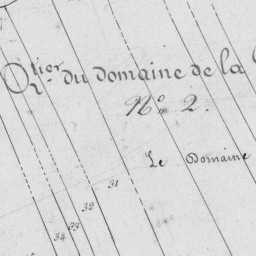 Qtier du domaine de la
No 2.
Le Domaine
31
32
33
34